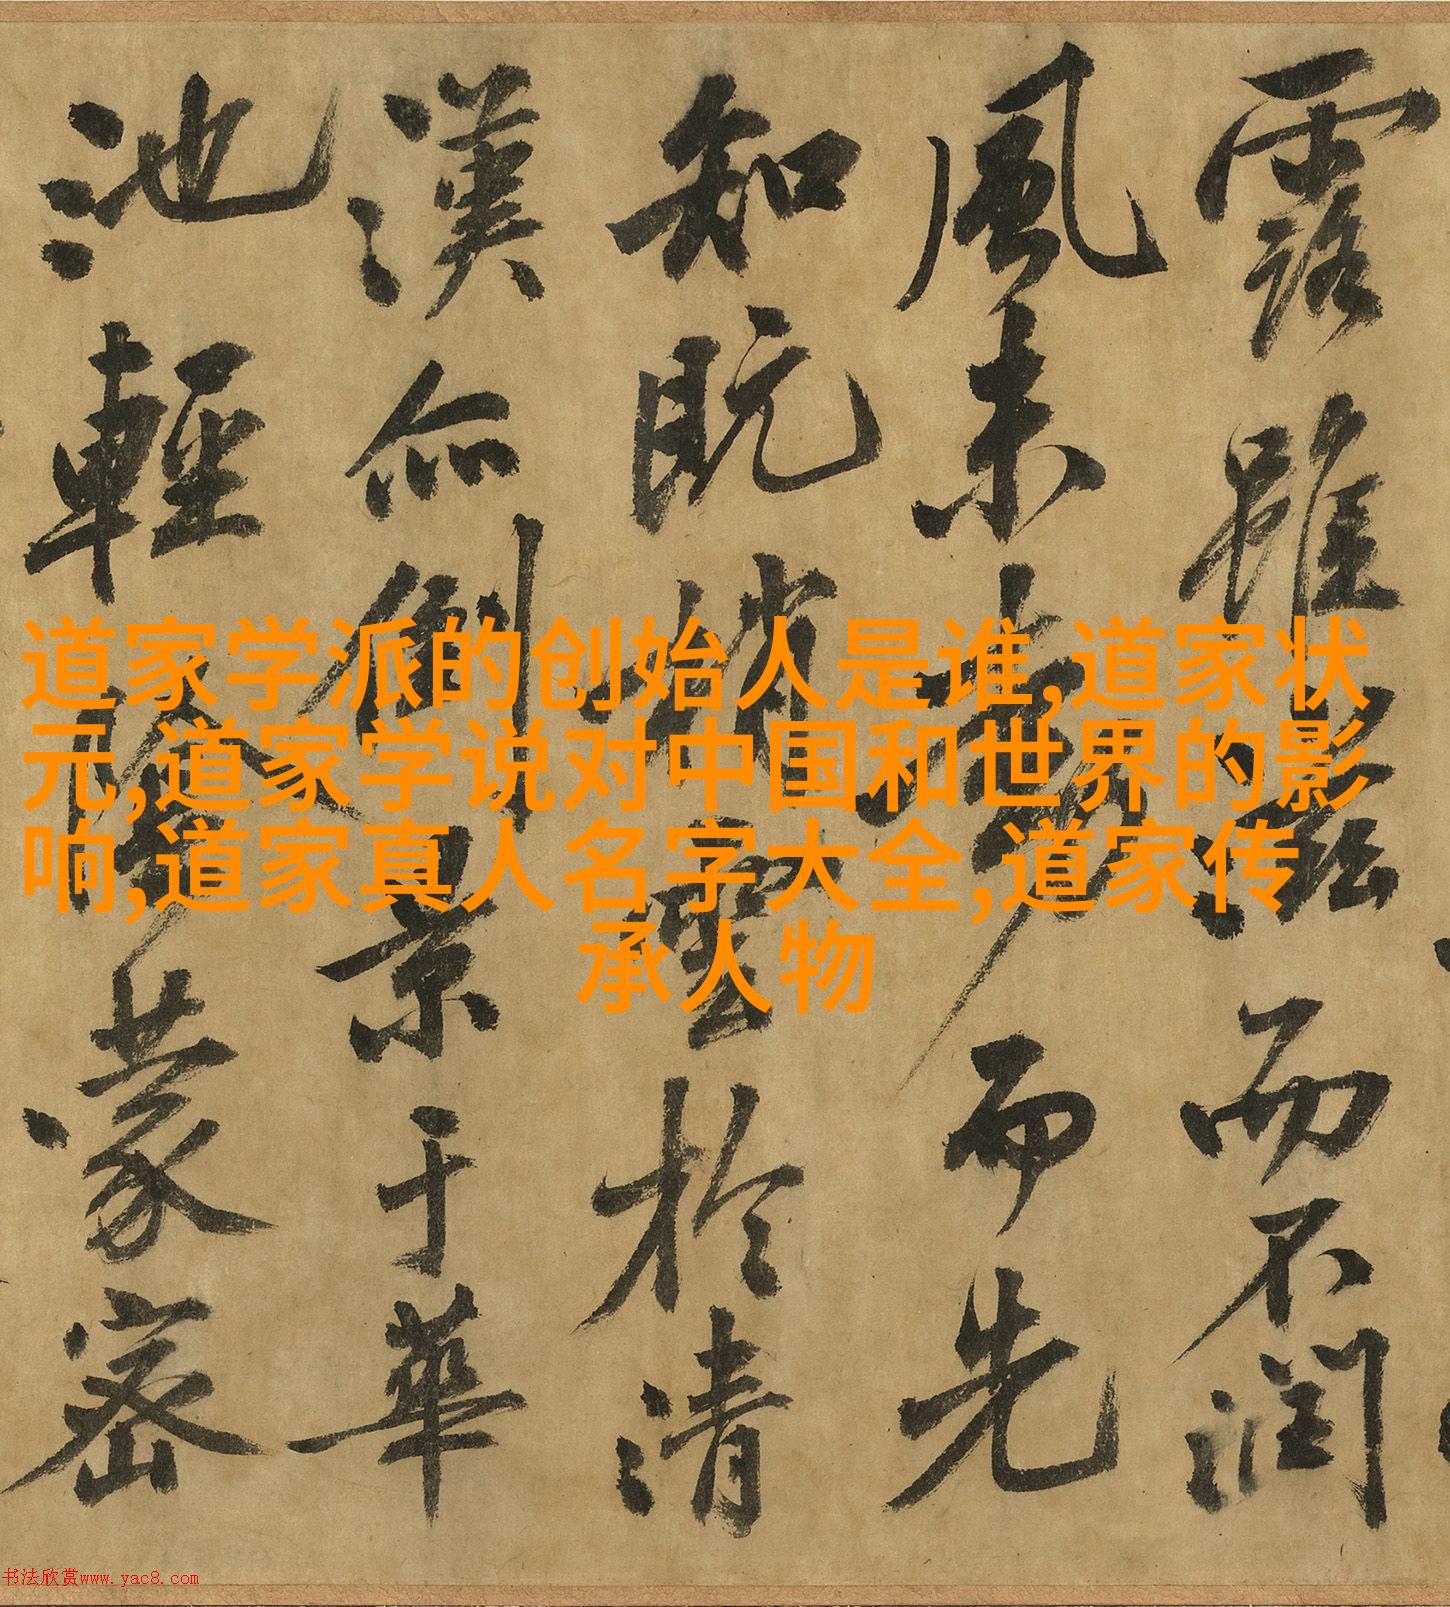 露雖滋而不潤
風未動而先
知既梢雲於清
漢亦倒景于華
池輕陰蒙密
道家学派的创始人是谁,道家状
元,道家学说对中国和世界的影
响,道家真人名字大全,道家传
承人物
书法欣赏www.yac8.com